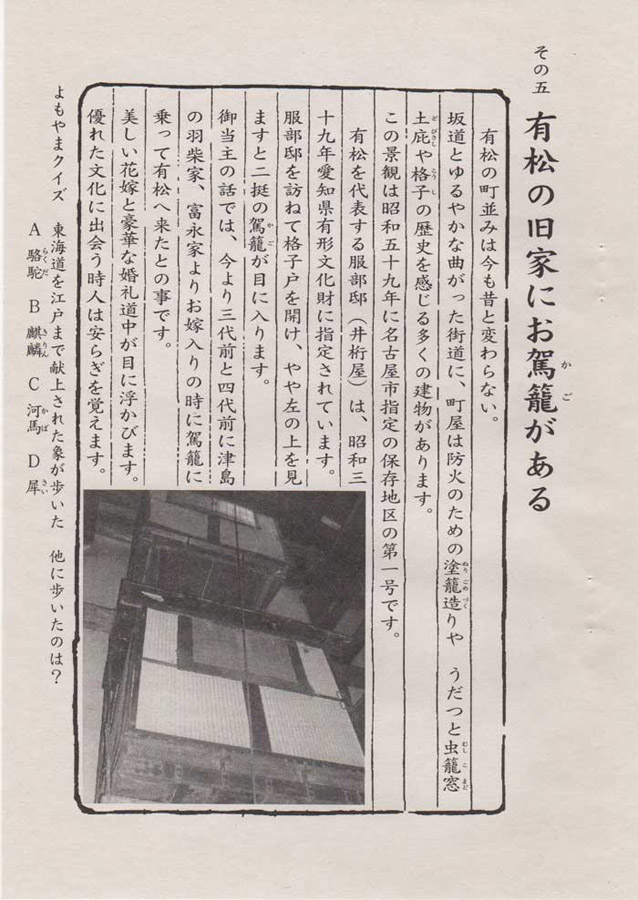 その五
有松の旧家にお駕籠がある
有松の町並みは今も昔と変わらない。
坂道とゆるやかな曲がった街道に、町屋は防火のための塗籠造りや うだつと虫籠窓
土庇や格子の歴史を感じる多くの建物があります。
この景観は昭和五十九年に名古屋市指定の保存地区の第一号です。
有松を代表する服部邸（井桁屋）は、昭和三
十九年愛知県有形文化財に指定されています。
服部邸を訪ねて格子戸を開け、やや左の上を見
ますと二挺の駕籠が目に入ります。
御当主の話では、今より三代前と四代前に津島
の羽柴家、富永家よりお嫁入りの時に駕籠に
乗って有松へ来たとの事です。
美しい花嫁と豪華な婚礼道中が目に浮かびます。
優れた文化に出会う時人は安らぎを覚えます。
よもやまクイズ 東海道を江戸まで献上された象が歩いた 他に歩いたのは？
A 駱駝 B 麒麟 C 河馬 D 犀